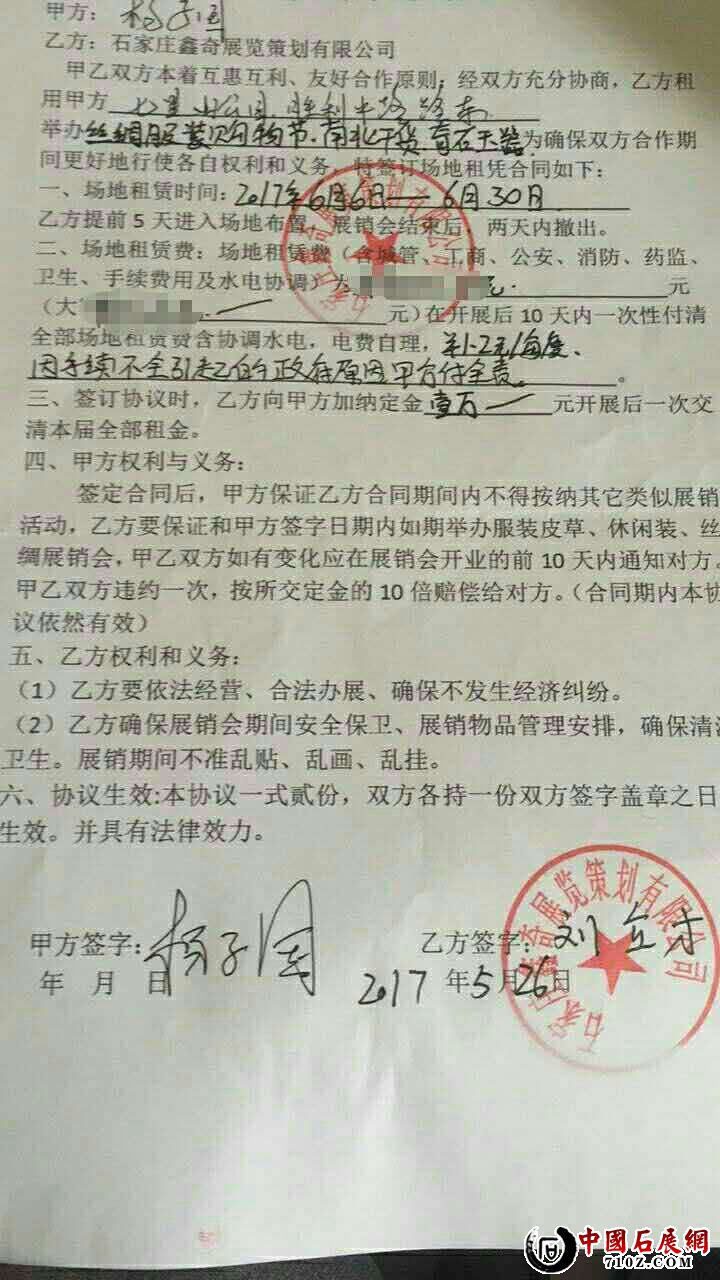 甲方：杨子国
乙方：石家庄鑫奇展览策划有限公司
甲乙双方本着互惠互利、友好合作原则；经双方充分协商，乙方租
用甲方 七里山公园 胜利中路 路东
举办丝绸服装购物节.南北干货.奇石玉器为确保双方合作期
间更好地行使各自权利和义务，特签订场地租凭合同如下：
一、场地租赁时间：2017年6月6日——6月30日
乙方提前5天进入场地布置，展销会结束后，两天内撤出。
二、场地租赁费：场地租赁费（含城管、工商、公安、消防、药监、
卫生、手续费用及水电协调）为 元
（大 元）在开展后10天内一次性付清
全部场地租赁费含协调水电，电费自理，1-2元/每度、
因手续不全引起 政府原因甲方付全责。
三、签订协议时，乙方向甲方加纳定金 壹万一 元开展后一次交
清本届全部租金。
四、甲方权利与义务：
签定合同后，甲方保证乙方合同期间内不得按纳其它类似展销
活动，乙方要保证和甲方签字日期内如期举办服装皮草、休闲装、丝
绸展销会，甲乙双方如有变化应在展销会开业的前10天内通知对方。
甲乙双方违约一次，按所交定金的10倍赔偿给对方。（合同期内本协
议依然有效）
五、乙方权利和义务：
（1）乙方要依法经营、合法办展、确保不发生经济纠纷。
（2）乙方确保展销会期间安全保卫、展销物品管理安排，确保清洁
卫生。展销期间不准乱贴、乱画、乱挂。
六、协议生效:本协议一式贰份，双方各持一份双方签字盖章之日
生效。并具有法律效力。
甲方签字：杨子国
乙方签字：刘立才
年 月 日
2017年5月26日
石家庄鑫奇展览策划有限公司
石家庄鑫奇展览策划有限公司
中國石展網
710Z.COM